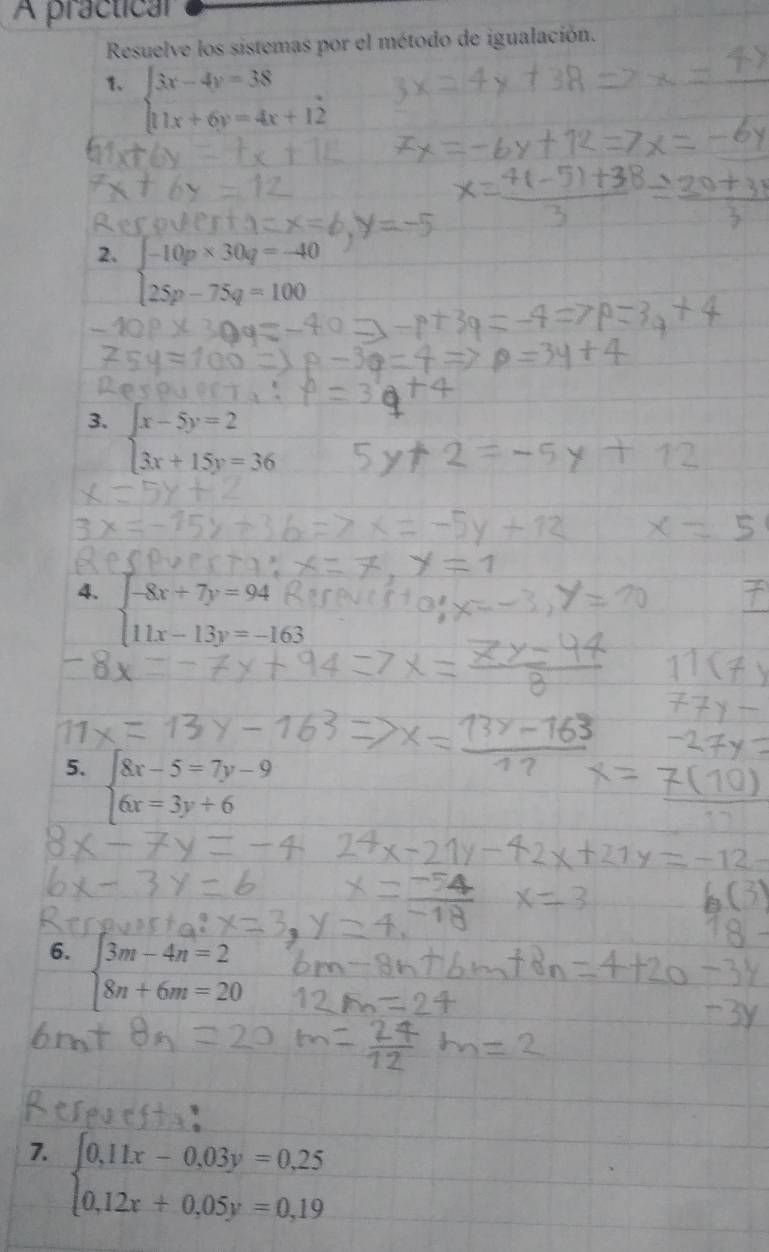 A practicar
Resuelve los sistemas por el método de igualación.
1. 3x - 4y = 38
3x = 4y + 38 => x =
11x + 6y = 4x + 12
7x = -6y + 12 => x = -6y
7x + 6y = 12
x = 4(-5) + 38
3
Respuesta = x = 6, y = -5
2. -10p × 30q = -40
25p - 75q = 100
-10p × 30q = -40 => -p + 3q = -4 => p = 3q + 4
75y = 100 => p - 3q = 4 => p = 3y + 4
Respuesta: p = 3q + 4
3. x - 5y = 2
3x + 15y = 36
5y + 2 = -5y + 12
x = 5y + 2
3x = -15y + 36 => x = -5y + 12
x = 5
Respuesta: x = 7, y = 1
4. -8x + 7y = 94
Respuesta: x = -3, y = 10
11x - 13y = -163
-8x = -7y + 94 => x = 7y - 94
8
11(7y
77y -
11x = 13y - 163 => x = 13y - 163
-27y =
5. 8x - 5 = 7y - 9
x = 7(10)
6x = 3y + 6
8x - 7y = -4
24x - 21y - 42x + 21y = -12
6x - 3y = 6
x = -54
-18
x = 3
6(3)
18 -
Respuesta: x = 3, y = 4.
6. 3m - 4n = 2
6m - 8n + 6m + 8n = 4 + 20
-3y
8n + 6m = 20
12m = 24
-3y
6m + 8n = 20
m = 24
12
m = 2
Respuesta:
7. 0,11x - 0,03y = 0,25
0,12x + 0,05y = 0,19